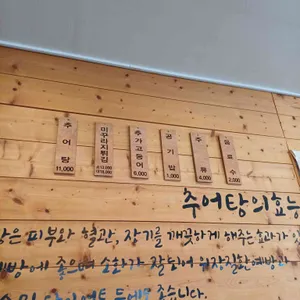 추어탕 11,000
미꾸라지튀김
추가고등어 6,000
공기밥 1,000
주류 4,000
음료수 2,000
추어탕의효능
은 피부와 혈관, 장기를 깨끗하게 해주는효과가
예방에 좋으며 소화가 잘되어 위장질환예방과
다이어트 등에도 좋습니다.